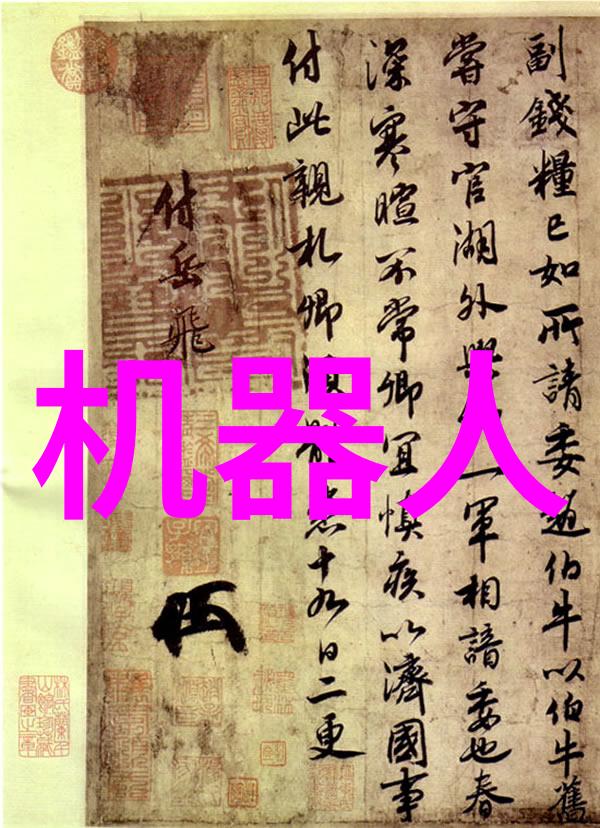 副錢糧已如所請委趙伯牛以伯牛舊
嘗守官湖外與一軍相諳委也春
深寒暄不常卿宜慎疾以濟國事
付此親札卿須體悉十九日二更
付岳飛
机器人